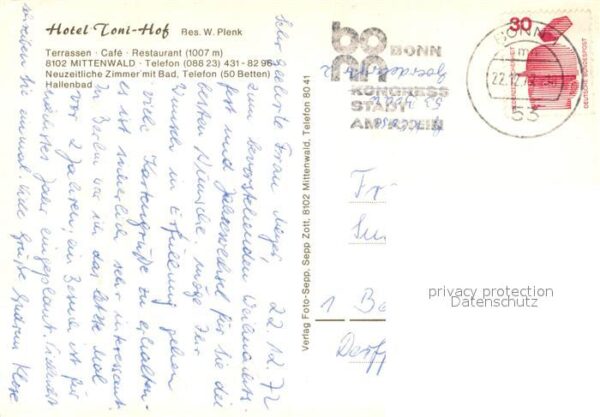 Hotel Toni-Hof Bes. W. Plenk
Terrassen · Café · Restaurant (1007 m)
8102 MITTENWALD · Telefon (088 23) 431 - 82 96
Neuzeitliche Zimmer mit Bad, Telefon (50 Betten)
Hallenbad
22.12.72
Sehr geehrte Frau
zum bevorstehenden Weihnachts-
fest und Jahreswechsel für Sie die
besten Wünsche, möge Ihr
Wunsch in Erfüllung gehen
viele Kartengrüße zu erhalten.
es ist sicherlich sehr interessant.
In Berlin war ich das letzte Mal
vor 2 Jahren, ein Besuch ist für
nächstes Jahr eingeplant. Vielleicht
schreiben Sie einmal. Liebe Grüße Gudrun
Verlag Foto-Sepp, Sepp Zott, 8102 Mittenwald, Telefon 80 41
BONN
KONGRESS
STADT
AM RHEIN
BONN
22.12.72
53
30
DEUTSCHE BUNDESPOST
Fr
1 Be
privacy protection
Datenschutz